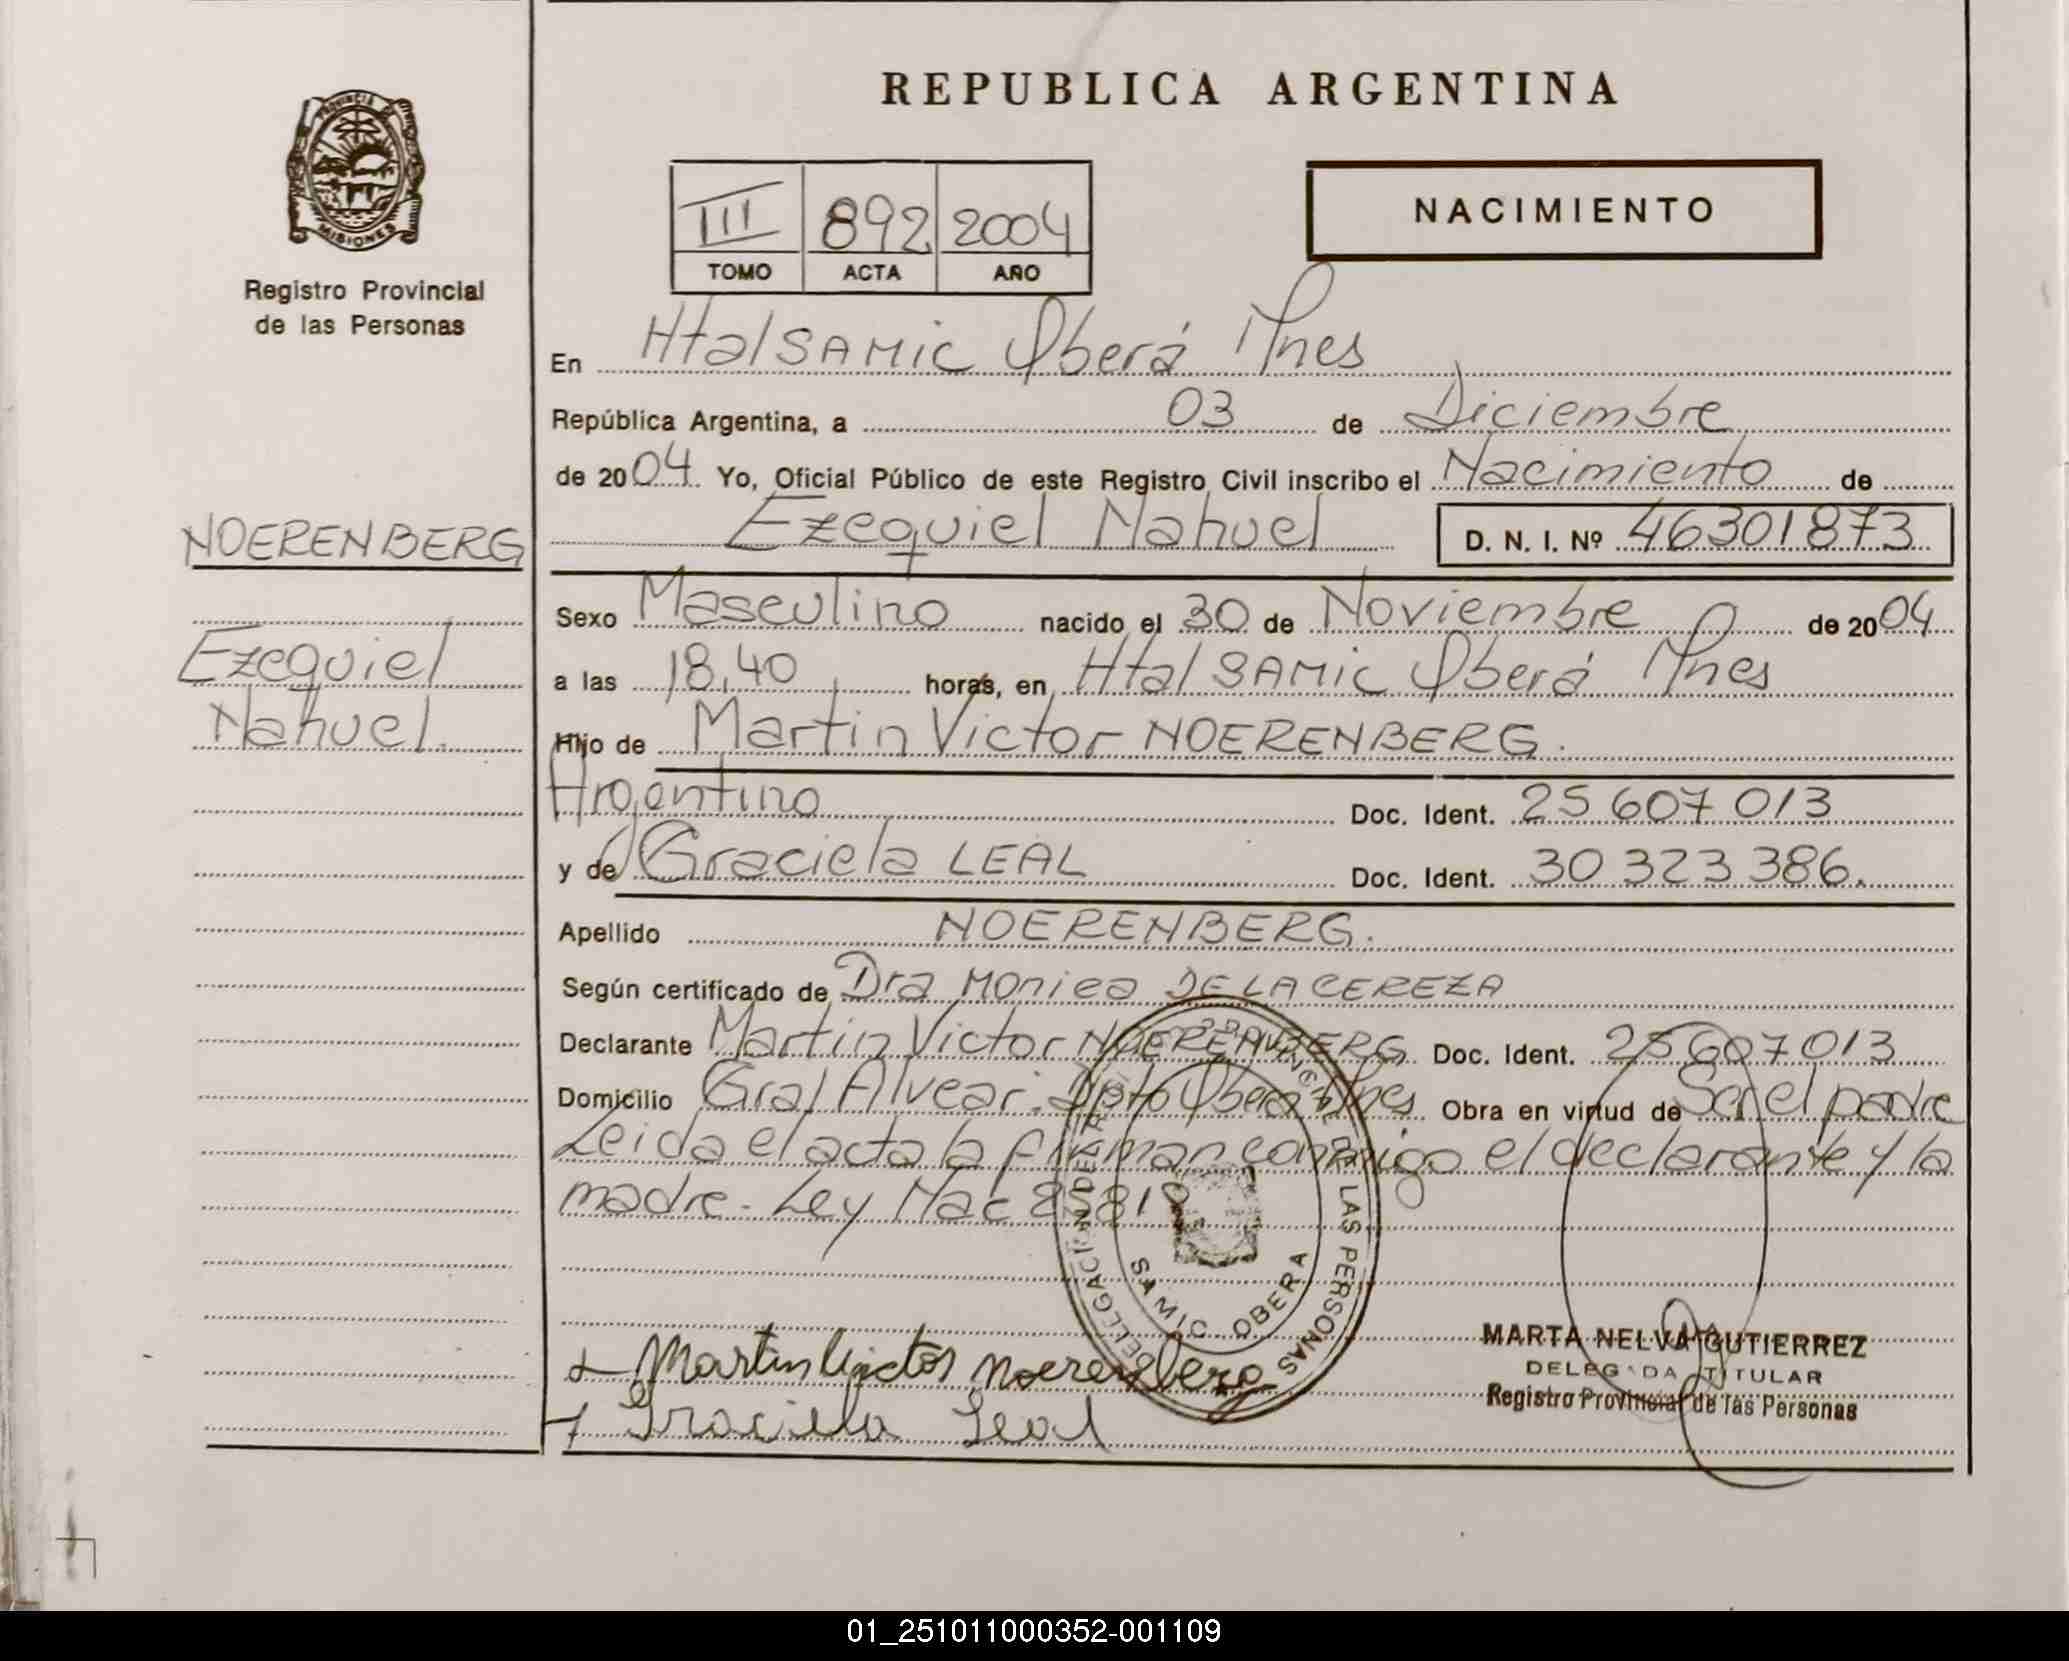 REPUBLICA ARGENTINA
PROVINCIA DE
MISIONES
Registro Provincial
de las Personas
III 892 2004
TOMO ACTA AÑO
NACIMIENTO
En Htal SAMIC Oberá Mnes
República Argentina, a 03 de Diciembre
de 2004 Yo, Oficial Público de este Registro Civil inscribo el Nacimiento de
NOERENBERG
Ezequiel Nahuel D. N. I. Nº 46301873
Sexo Masculino nacido el 30 de Noviembre de 2004
Ezequiel
a las 18,40 horas, en Htal SAMIC Oberá Mnes
Nahuel.
Hijo de Martin Victor NOERENBERG.
Argentino Doc. Ident. 25 607 013
y de Graciela LEAL Doc. Ident. 30 323 386.
Apellido NOERENBERG.
Según certificado de Dra Monica DE LA CEREZA
Declarante Martin Victor NOERENBERG Doc. Ident. 25607013
Domicilio Gral Alvear. Dpto Oberá Mnes Obra en virtud de Ser el padre
Leida el acta la firman conmigo el declarante y la
madre. Ley Nac
DE LAS PERSONAS
SAMIC OBERA
Martin Victor Noerenberg
Graciela Leal
MARTA NELVA GUTIERREZ
DELEGADA TITULAR
Registro Provincial de las Personas
01_251011000352-001109